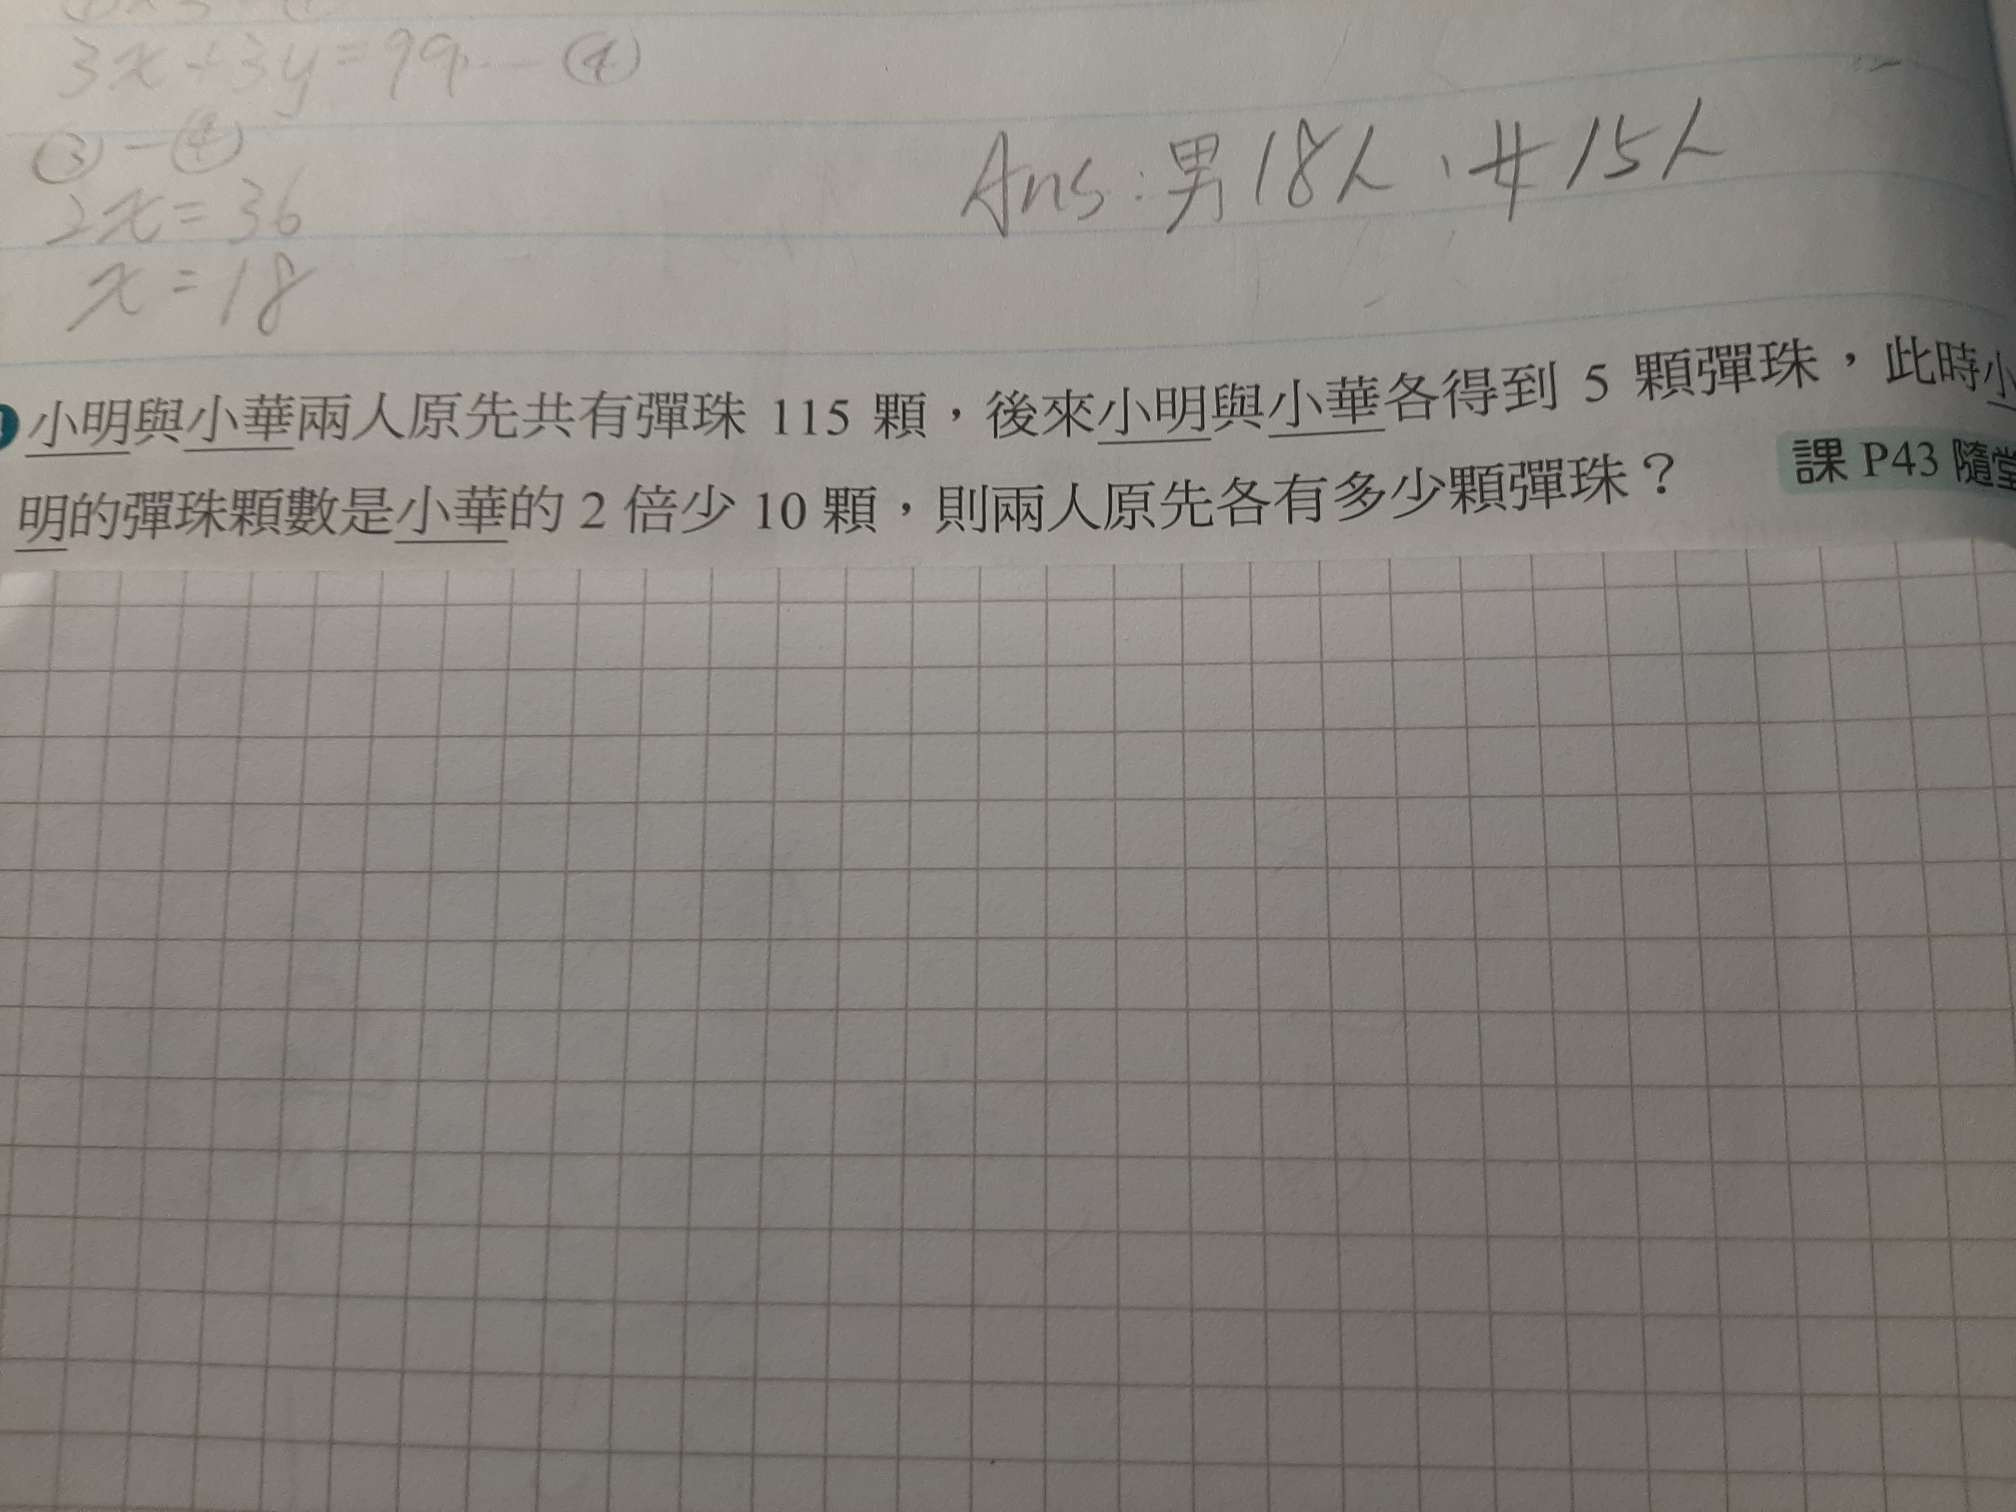 3x+3y=99……④
③-④
2x=36
x=18
Ans:男18人、女15人
小明與小華兩人原先共有彈珠 115 顆，後來小明與小華各得到 5 顆彈珠，此時小
明的彈珠顆數是小華的 2 倍少 10 顆，則兩人原先各有多少顆彈珠？
課 P43 隨堂